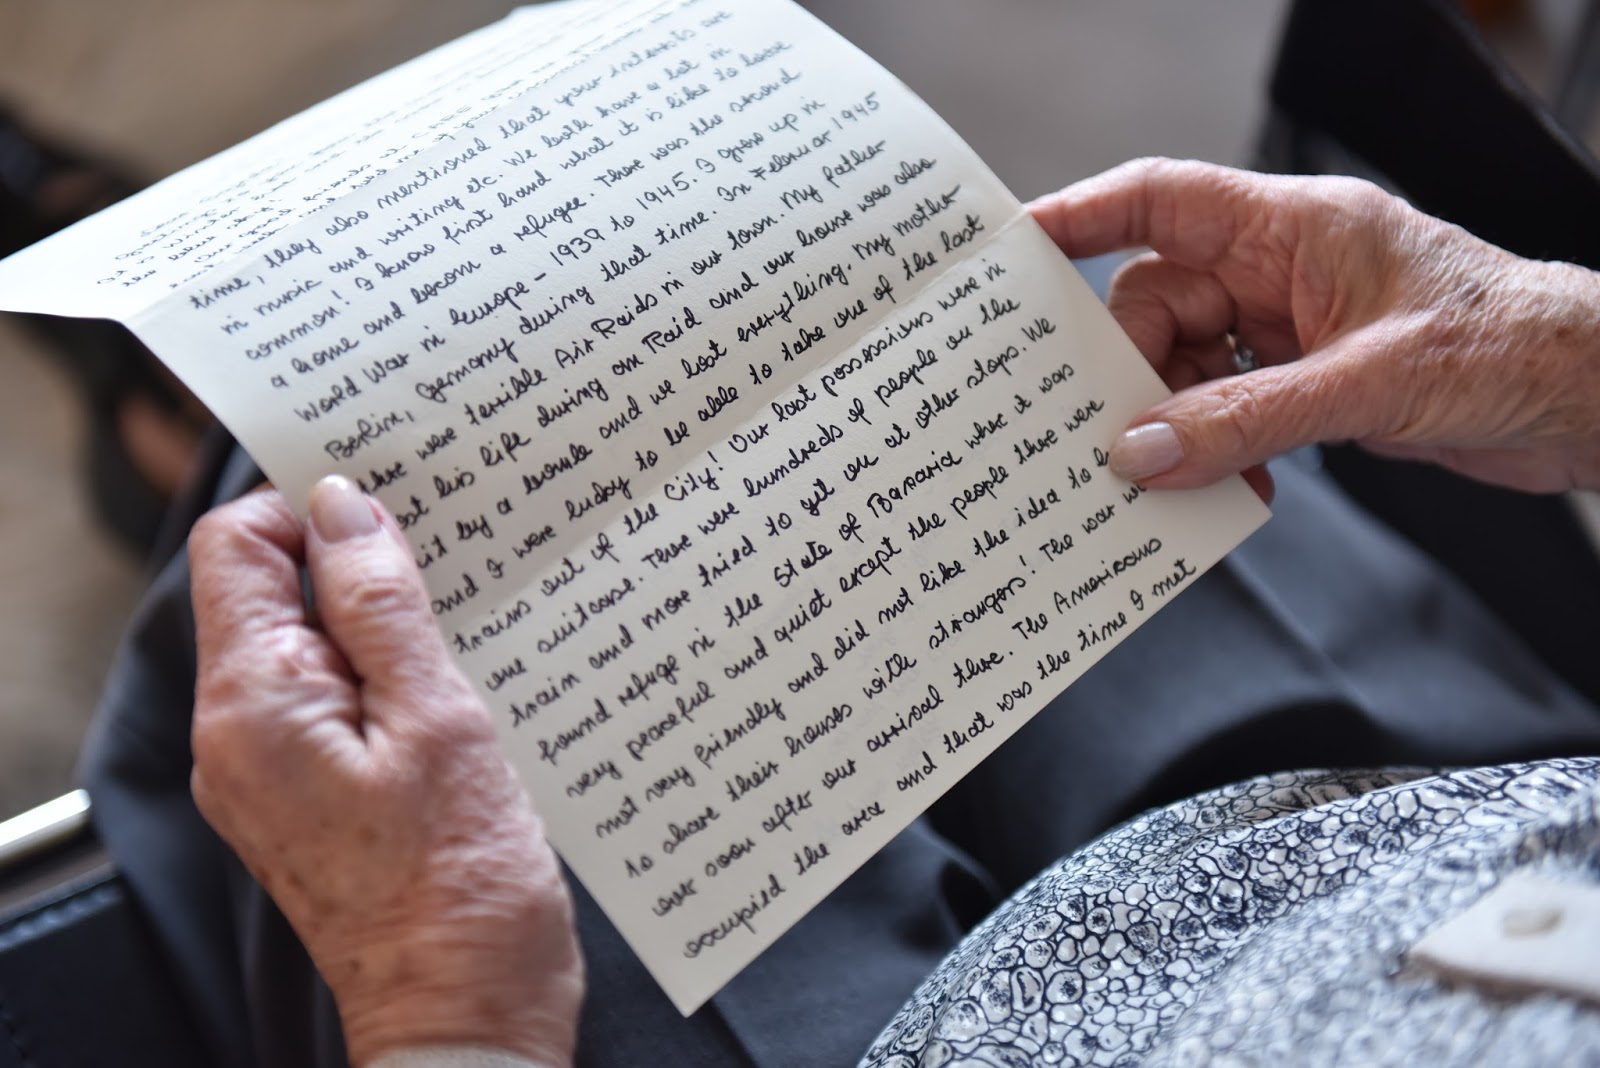 time, they also mentioned that your interests are
in music and writing etc. We both have a lot in
common! I know first hand what it is like to loose
a home and becom a refugee. There was the second
World War in Europe - 1939 to 1945. I grew up in
Berlin, Germany during that time. In Februar 1945
there were terrible Air Raids in our town. My father
lost his life during an Raid and our house was also
hit by a bomb and we lost everything. My mother
and I were lucky to be able to take one of the last
trains out of the City! Our last possessions were in
one suitcase. There were hundreds of people on the
train and more tried to get on at other stops. We
found refuge in the State of Bavaria wher it was
very peaceful and quiet except the people there were
not very friendly and did not like the idea to
to share their houses with strangers! The war
over soon after our arrival there. The Americans
occupied the area and that was the time I met